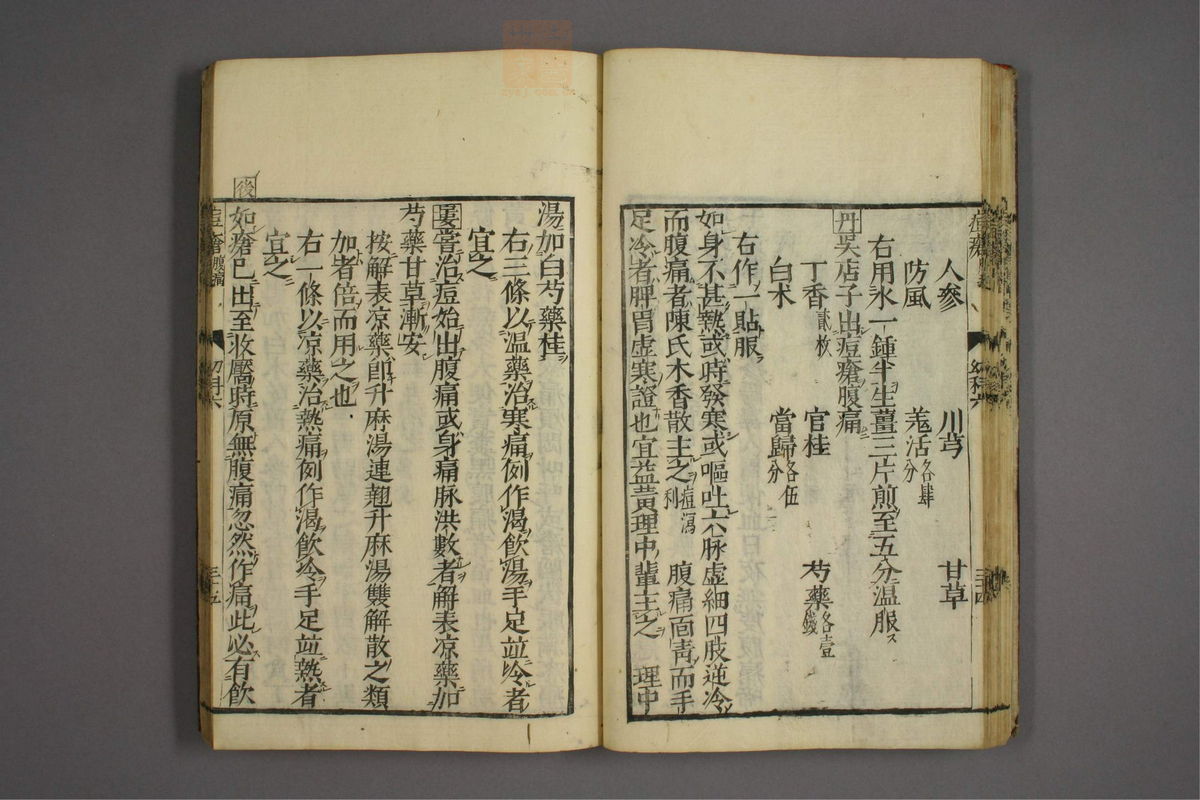 人參　川芎　甘草
防風　羗活各肆分
右用水一鍾半生薑三片煎至五分温服ス
丹吳店子出痘瘡腹痛
丁香貳枚　官桂　芍藥各壹錢
白朮　當歸各伍分
右作一貼服
如身不甚熱或時發寒或嘔吐六脉虛細四肢逆冷
而腹痛者陳氏木香散主之痘瀉利　腹痛面青而手
足冷者脾胃虛寒證也宜益黃理中輩主之　理中
湯加白芍藥桂
右三條以温藥治寒痛例作渴飲湯手足並冷者
宜之
婁嘗治痘始出腹痛或身痛脉洪數者解表凉藥加
芍藥甘草漸安
按解表凉藥即升麻湯連翹升麻湯雙解散之類
加者倍而用之也
右一條以凉藥治熱痛例作渴飲冷手足並熱者
宜之
後
如瘡已出至收靨時原無腹痛忽然作痛此必有飲
痘瘡腹痛
幼科六
三十五